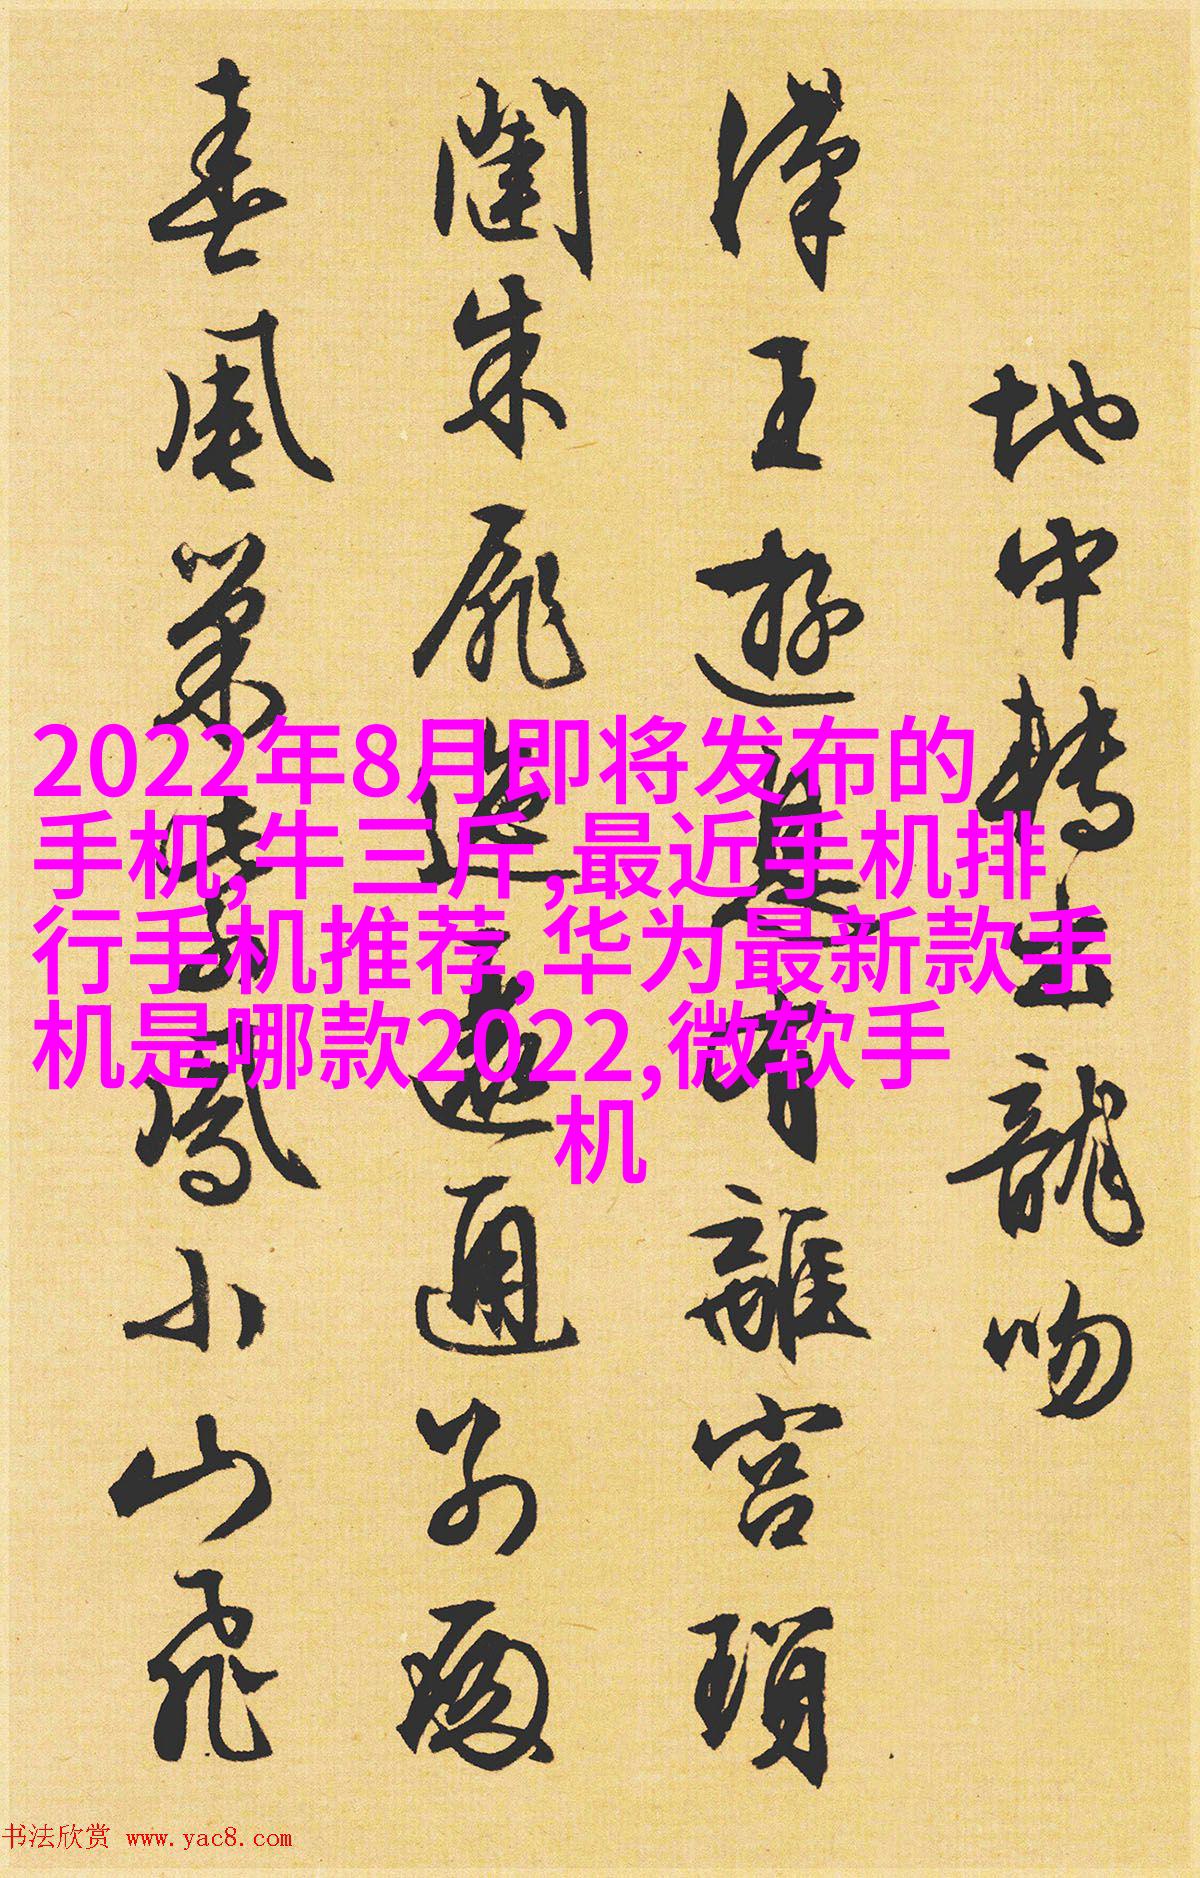 地中轉出龍吻
漢王遊息時離宮瑣
闥朱扉迤邐通別殿
春風巢紫鳳小山飛
2022年8月即将发布的
手机,牛三斤,最近手机排
行手机推荐,华为最新款手
机是哪款2022,微软手
机
书法欣赏 www.yac8.com